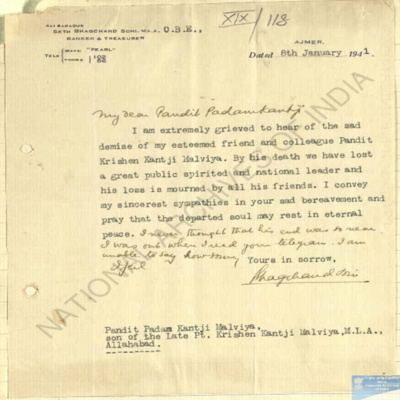 XIX/118
RAI BAHADUR
SETH BHAGCHAND SONI, M.L.A. O.B.E.,
BANKER & TREASURER
TELE GRAMS "PEARL"
PHONE 1'88
AJMER.
Dated 8th January 1941.
My dear Pandit Padamkantji
I am extremely grieved to hear of the sad
demise of my esteemed friend and colleague Pandit
Krishen Kantji Malviya. By his death we have lost
a great public spirited and national leader and
his loss is mourned by all his friends. I convey
my sincerest sympathies in your sad bereavement and
pray that the departed soul may rest in eternal
peace. I never thought that his end was so near.
I was out when I recd your telegram. I am
unable to say how much
I feel
Yours in sorrow,
Bhagchand Soni
Pandit Padam Kantji Malviya,
son of the Late Pt. Krishen Kantji Malviya, M.L.A.,
Allahabad.
NATIONAL ARCHIVES OF INDIA